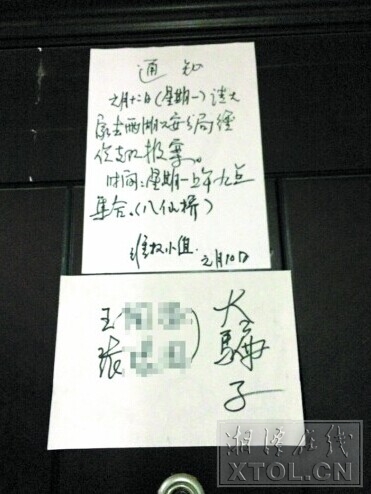 通知
元月十二日(星期一)请大
家去两湖公安分局经
侦支队报案。
时间:星期一上午九点
集合。(八仙桥)
维权小组.
元月10日
王
张
大骗子
湘潭在线
XTOL.CN